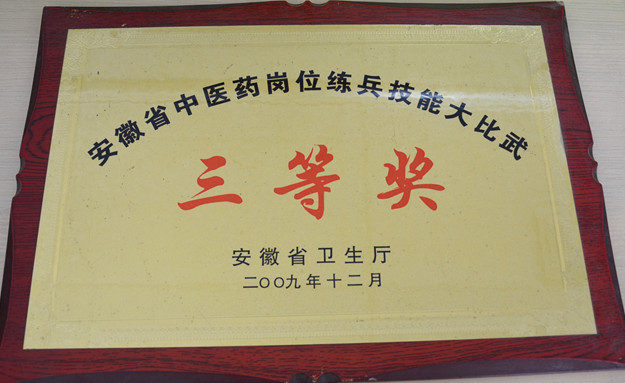 安徽省中医药岗位练兵技能大比武
三等奖
安徽省卫生厅
二〇〇九年十二月